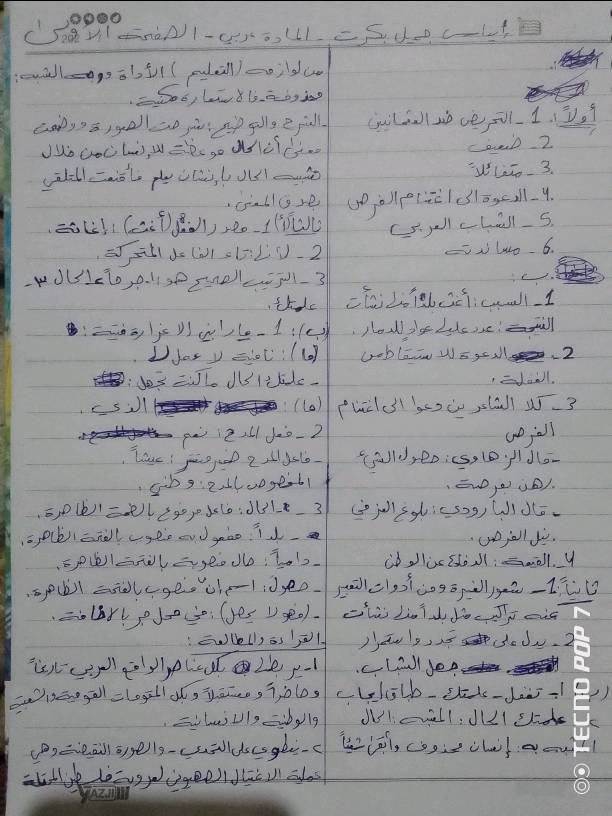 إيناس جميل بكرت - المادة عربي - الصفحة الأولى
أولاً: 1- التحريض ضد العثمانيين
2- ضعيف
3- متفائلاً
4- الدعوة الى اغتنام الفرص
5- الشباب العربي
6- مساندته
ب:
1- السبب: أغث بلداً منها نشأت
النتيجة: عدد عليها عواد للدمار.
2- الدعوة للاستيقاظ من
الغفلة.
3- كلا الشاعرين دعوا الى اغتنام
الفرص
- قال الزهاوي: حصول الشيء
رهن بفرصة.
- قال البارودي: بلوغ العز في
نيل الفرص.
4- القيمة: الدفاع عن الوطن
ثانياً: 1- شعور الغيرة ومن أدوات التعبير
عنه تراكيب مثل بلداً منها نشأت
2- يدل على تجدد واستمرار
جهل الشباب.
1- تغفل - علمتك - طباق إيجاب
علمتك الحال: المشبه: الحال
المشبه به: إنسان محذوف وأبقى شيئاً
من لوازمه (التعليم) الأداة ووجه الشبه:
محذوفة فالاستعارة مكنية.
- الشرح والتوضيح: شرحت الصورة ووضحت
معنى أن الحال موعظة للإنسان من خلال
تشبيه الحال بإنسان يعلم فأقنعت المتلقي
بصدق المعنى.
ثالثاً (أ) 1- مصدر الفعل (أغث): إغاثة.
2- تاء الفاعل المتحركة.
3- الترتيب الصحيح هو: 1- جرماً 2- الحال 3-
علمتك.
(ب): 1- ما رابني الا غرارة فتية:
(ما): نافية لا عمل لها
- علمتك الحال ما كنت تجهل:
(ما): الذي.
2- فعل المدح: نعم
- فاعل المدح ضمير مستتر: عيشاً.
المخصوص بالمدح: وطني.
3- الحال: فاعل مرفوع بالضمة الظاهرة.
- بلداً: مفعول به منصوب بالفتحة الظاهرة.
- دامياً: حال منصوبة بالفتحة الظاهرة.
- حصول: اسم إن منصوب بالفتحة الظاهرة.
- (فهو لا يحصل): في محل جر بالإضافة.
القراءة والمطالعة:
1- يربطه بكل عناصر الواقع العربي تاريخاً
وحاضراً ومستقبلاً وبكل المقومات القومية والشعبية
والوطنية والانسانية.
2- ينطوي على التحدي - والصورة النقيضة وهي
عملية الاغتيال الصهيوني لعروبة فلسطين المحتلة
YAZJI
TECNO POP 7